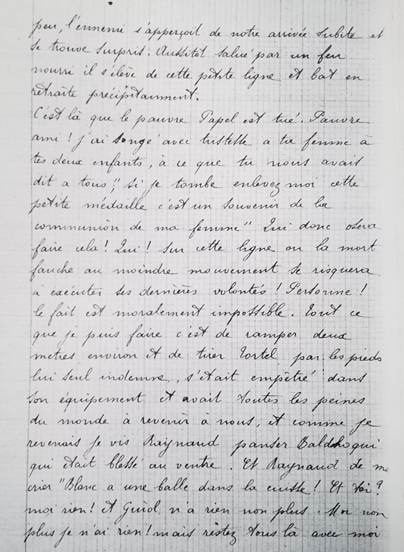 peu, l'ennemi s'apperçoit de notre arrivée subite et
se trouve surpris. Aussitôt salué par un feu
nourri il s'élève de cette petite ligne et bat en
retraite précipitamment.
C'est là que le pauvre Papel est tué. Pauvre
ami ! j'ai songé avec tristesse a ta femme à
tes deux enfants, à ce que tu nous avais
dit a tous, "si je tombe enlevez moi cette
petite médaille c'est un souvenir de la
communion de ma femme" Qui donc osera
faire cela ! Qui ! sur cette ligne ou la mort
fauche au moindre mouvement se risquera
a exécuter ses dernières volontés ! Personne !
le fait est moralement impossible. Tout ce
que je puis faire c'est de ramper deux
metres environ et de tirer Tortel par les pieds
lui seul indemne, s'était empêtré dans
son équipement et avait toutes les peines
du monde à revenir à nous, et comme je
revenais je vis Raynaud panser
qui était blessé au ventre. Et Raynaud de me
crier "Blanc a une balle dans la cuisse ! Et toi ?
moi rien ! et Guiol n'a rien non plus Moi non
plus je n'ai rien ! mais restez tous là avec moi